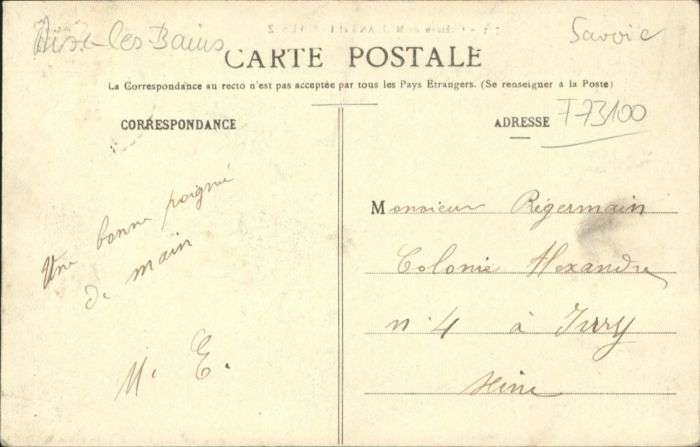 Aix-les-Bains
Savoie
CARTE POSTALE
La Correspondance au recto n'est pas acceptée par tous les Pays Étrangers. (Se renseigner à la Poste)
CORRESPONDANCE
ADRESSE
T73100
Une bonne poignée
de main
M. E.
Monsieur Régermain
Colonie Alexandre
n° 4 à Ivry
Seine